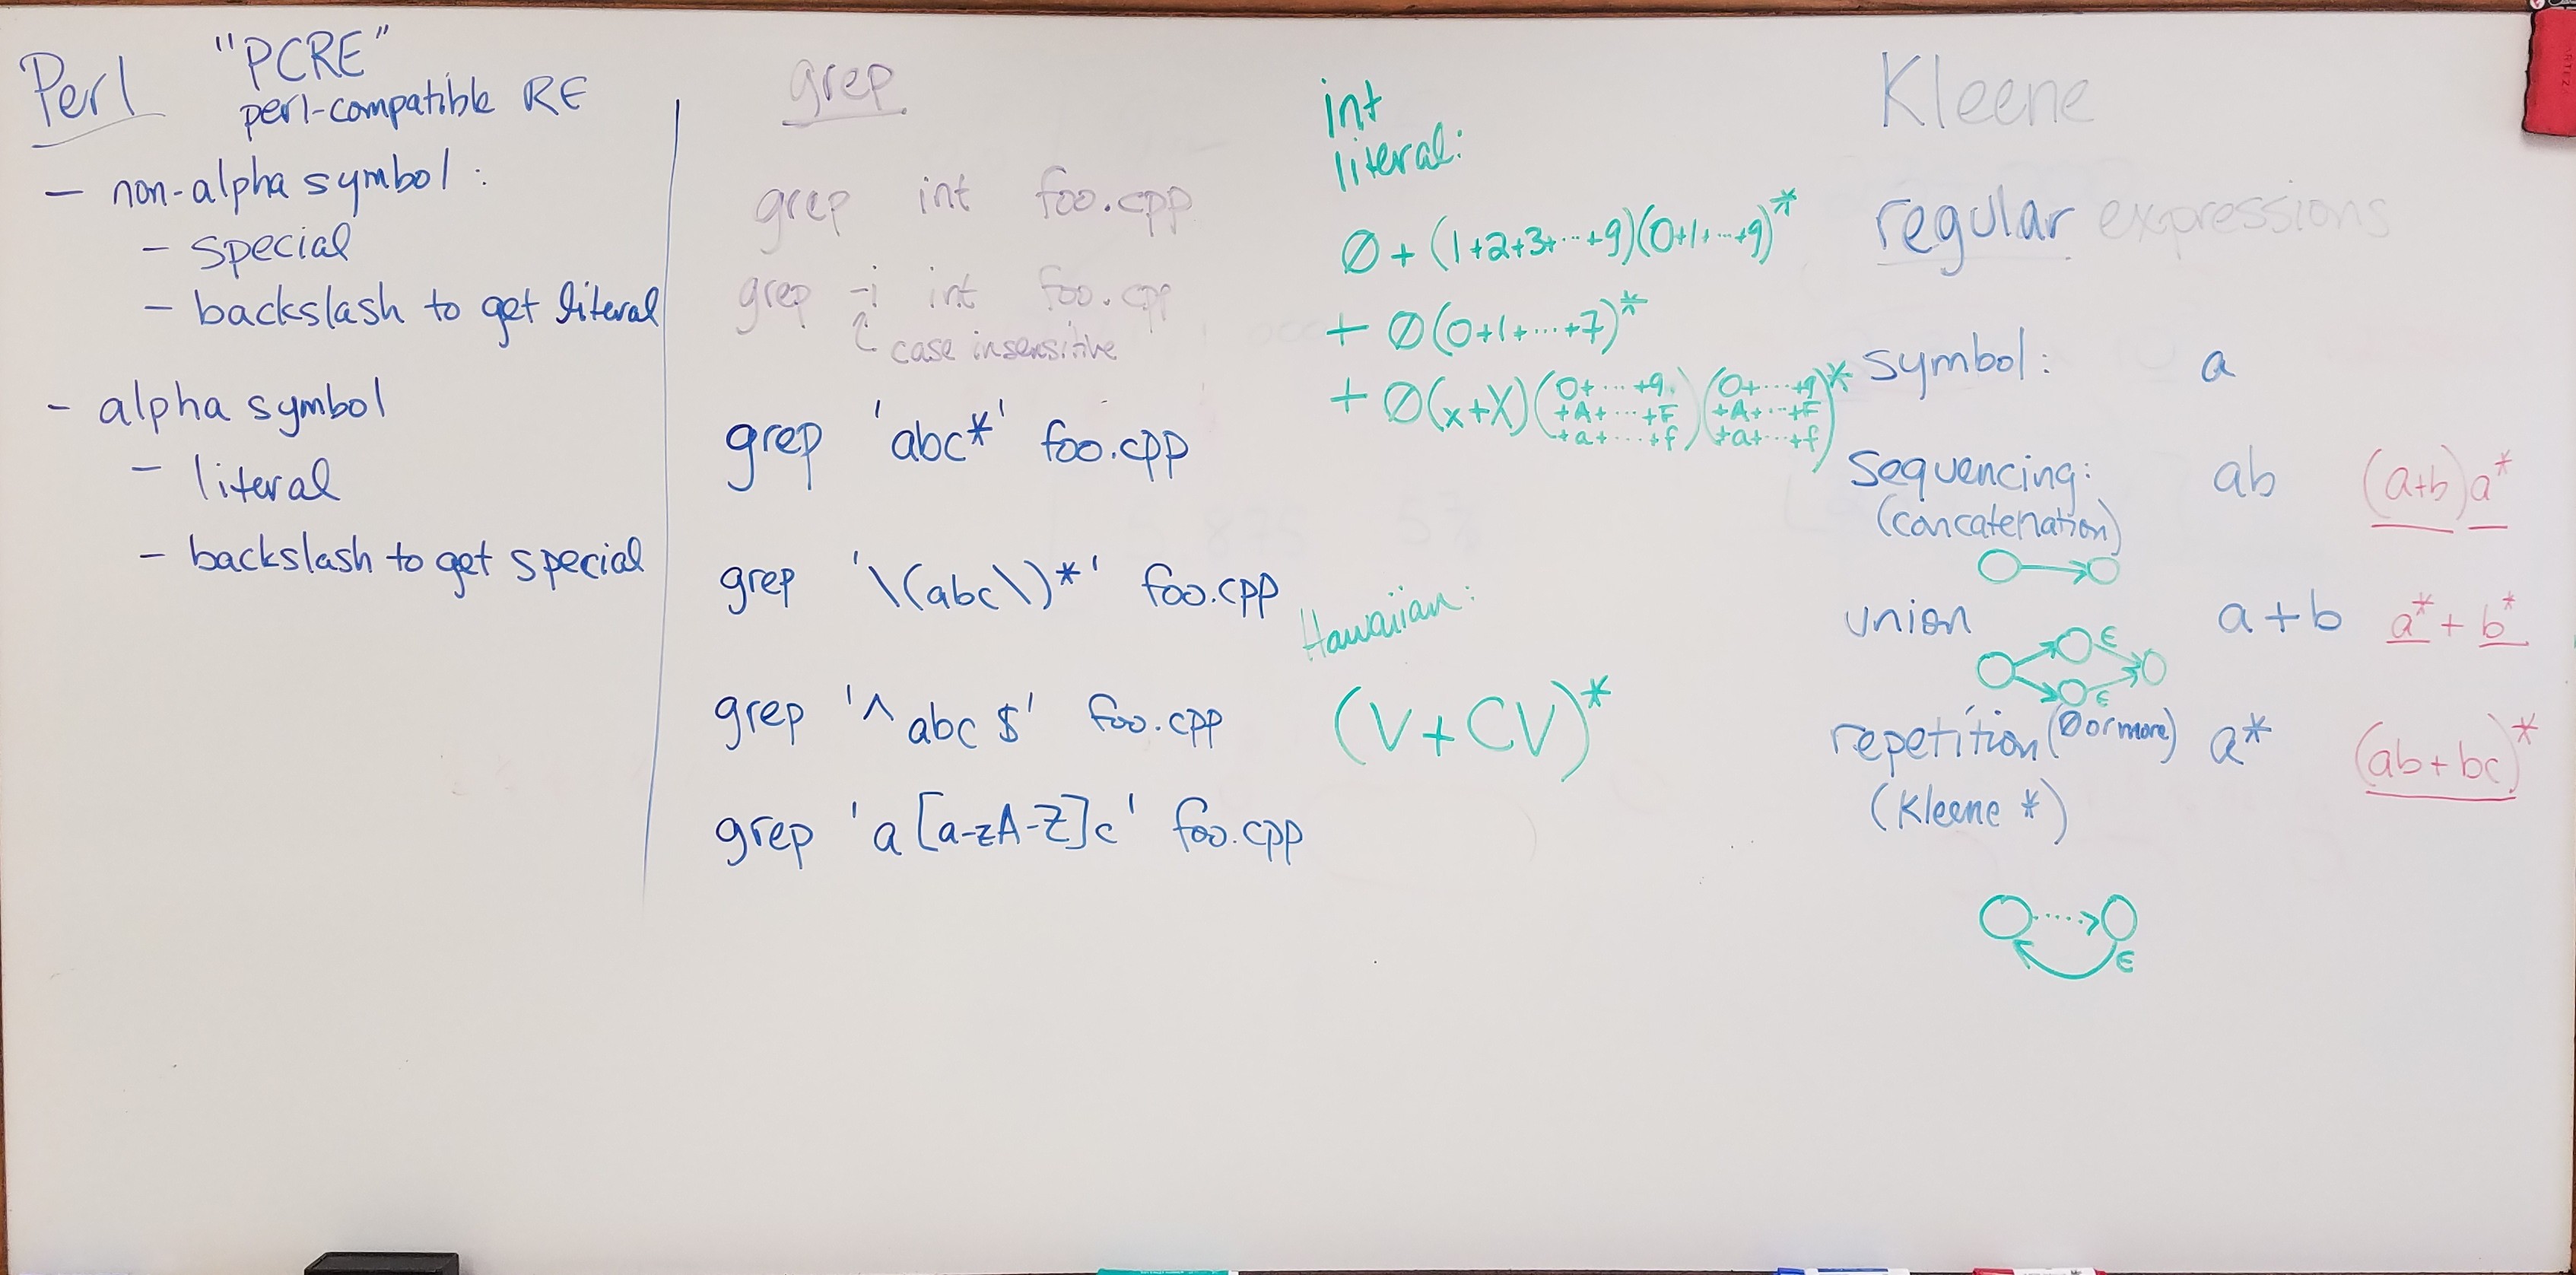 Perl "PCRE"
perl-compatible RE
— non-alpha symbol:
— special
— backslash to get literal
— alpha symbol
— literal
— backslash to get special
grep
grep int foo.cpp
grep -i int foo.cpp
case insensitive
grep 'abc*' foo.cpp
grep '\(abc\)*' foo.cpp
grep '^abc$' foo.cpp
grep 'a[a-zA-Z]c' foo.cpp
int
literal:
Ø + (1+2+3+···+9)(0+1+···+9)*
+ Ø(0+1+···+7)*
+ Ø(x+X)(0+···+9+A+···+F+a+···+f)(0+···+9+A+···+F+a+···+f)*
Hawaiian:
(V+CV)*
Kleene
regular expressions
symbol: a
sequencing: ab (a+b)a*
(concatenation)
union a+b a* + b*
ϵ
ϵ
repetition (Ø or more) a* (ab+bc)*
(Kleene *)
ϵ